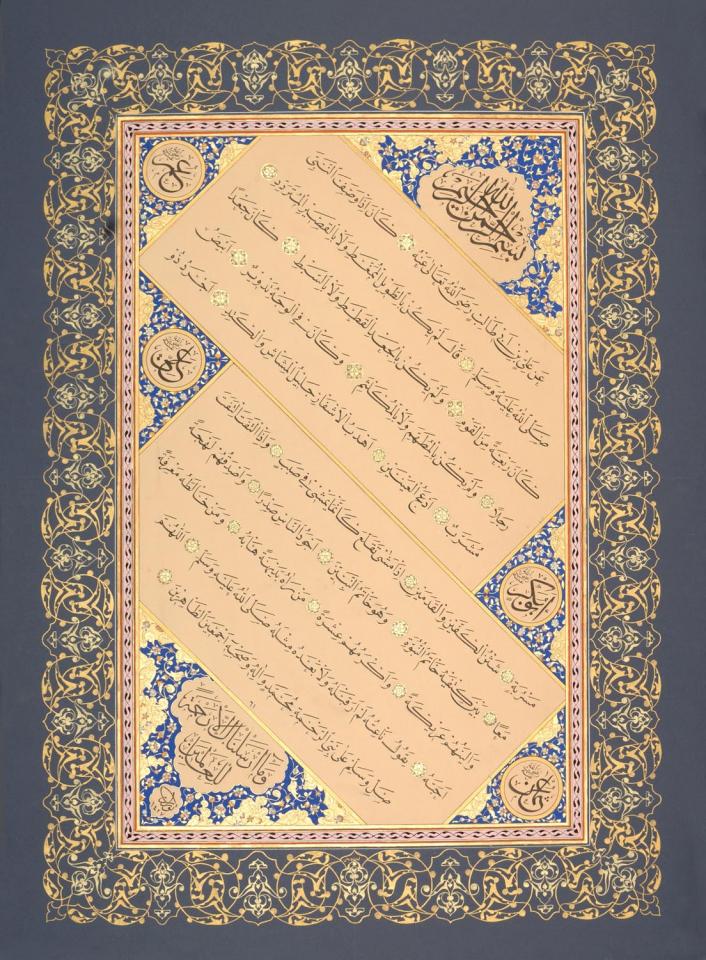 بسم الله الرحمن الرحيم
عن علي بن ابي طالب رضي الله تعالى عنه كان اذا وصف النبي
صلى الله عليه وسلم قال لم يكن بالطويل الممغط ولا بالقصير المتردد
كان ربعة من القوم ولم يكن بالجعد القطط ولا بالسبط كان جعدا
رجلا ولم يكن بالمطهم ولا بالمكلثم وكان في الوجه تدوير ابيض
مشرب ادعج العينين اهدب الاشفار جليل المشاش والكتد اجرد ذو
مسربة شثن الكفين والقدمين اذا مشى تقلع كأنما يمشي في صبب واذا التفت التفت
معا بين كتفيه خاتم النبوة وهو خاتم النبيين اجود الناس صدرا واصدقهم لهجة
والينهم عريكة واكرمهم عشرة من رآه بديهة هابه ومن خالطه معرفة
احبه يقول ناعته لم ار قبله ولا بعده مثله صلى الله عليه وسلم اللهم
صل وسلم على نبي الرحمة محمد وآله وصحبه اجمعين الطاهرين
ابو بكر
عمر
عثمان
علي
وما ارسلناك الا رحمة
للعالمين